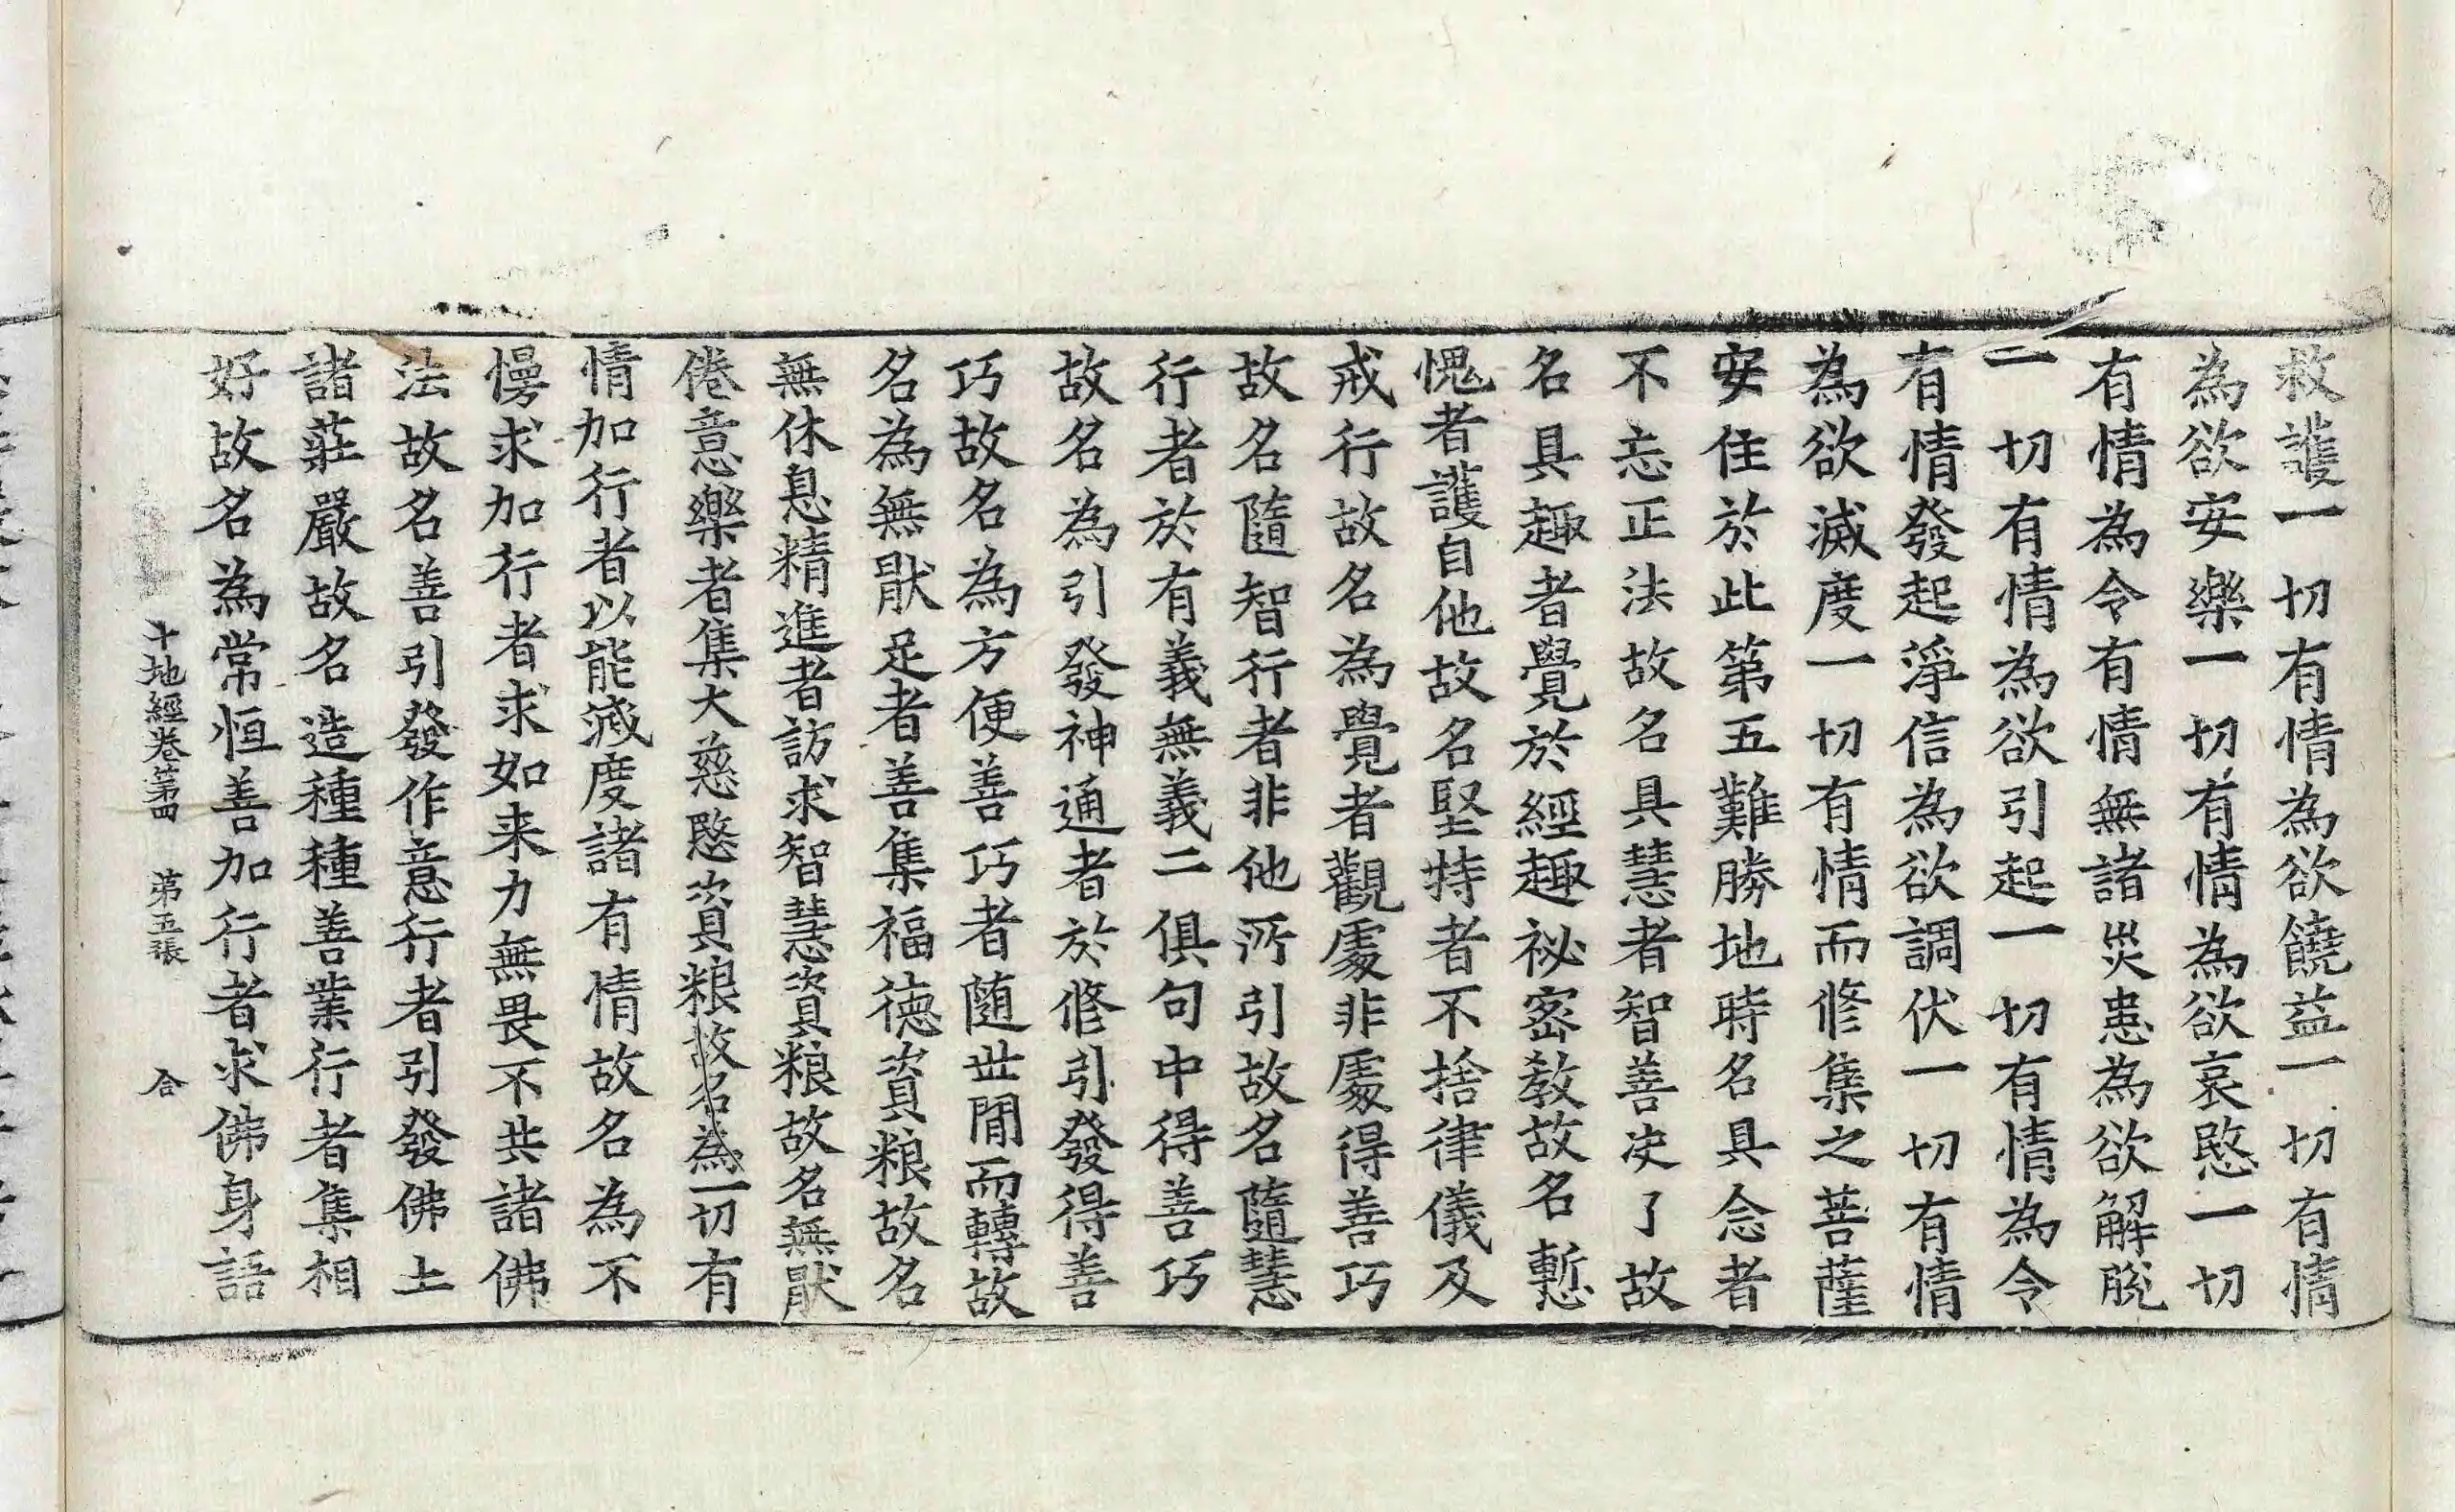 救護一切有情為欲饒益一切有情
為欲安樂一切有情為欲哀愍一切
有情為令有情無諸災患為欲解脫
一切有情為欲引起一切有情為令
有情發起淨信為欲調伏一切有情
為欲滅度一切有情而修集之菩薩
安住於此第五難勝地時名具念者
不忘正法故名具慧者智善决了故
名具趣者覺於經趣祕密教故名慙
愧者護自他故名堅持者不捨律儀及
戒行故名為覺者觀處非處得善巧
故名隨智行者非他所引故名隨慧
行者於有義無義二俱句中得善巧
故名為引發神通者於修引發得善
巧故名為方便善巧者随世間而轉故
名為無猒足者善集福德資粮故名
無休息精進者訪求智慧資粮故名無猒
倦意樂者集大慈愍資粮故名為一切有
情加行者以能滅度諸有情故名為不
慢求加行者求如来力無畏不共諸佛
法故名善引發作意行者引發佛土
諸莊嚴故名造種種善業行者集相
好故名為常恒善加行者求佛身語
十地經卷第四 第五張 合